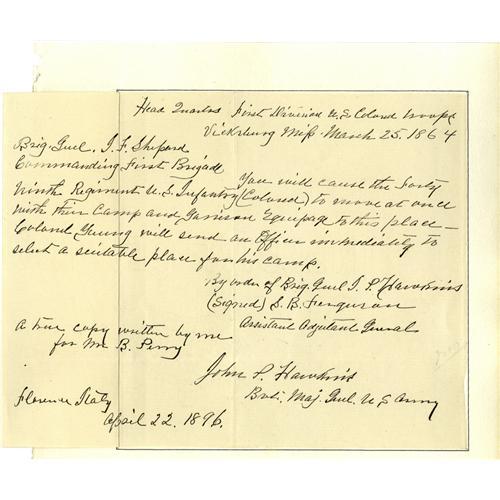 Head Quarters First Division U.S. Colored troops
Vicksburg Miss. March 25. 1864
Brig. Genl. I. F. Shepard
Commanding First Brigade
You will cause the Forty
Ninth Regiment U.S. Infantry (Colored) to move at once
with their Camp and Garrison Equipage to this place –
Colonel Young will send an Officer immediately to
select a suitable place for his camp.
By order of Brig. Genl J. P. Hawkins
(Signed) S. B. Ferguson
Assistant Adjutant General
A true copy written by me
for Mr B. Perry
John P. Hawkins
Bvt. Maj. Genl. U S Army
Florence Italy
April 22. 1896.